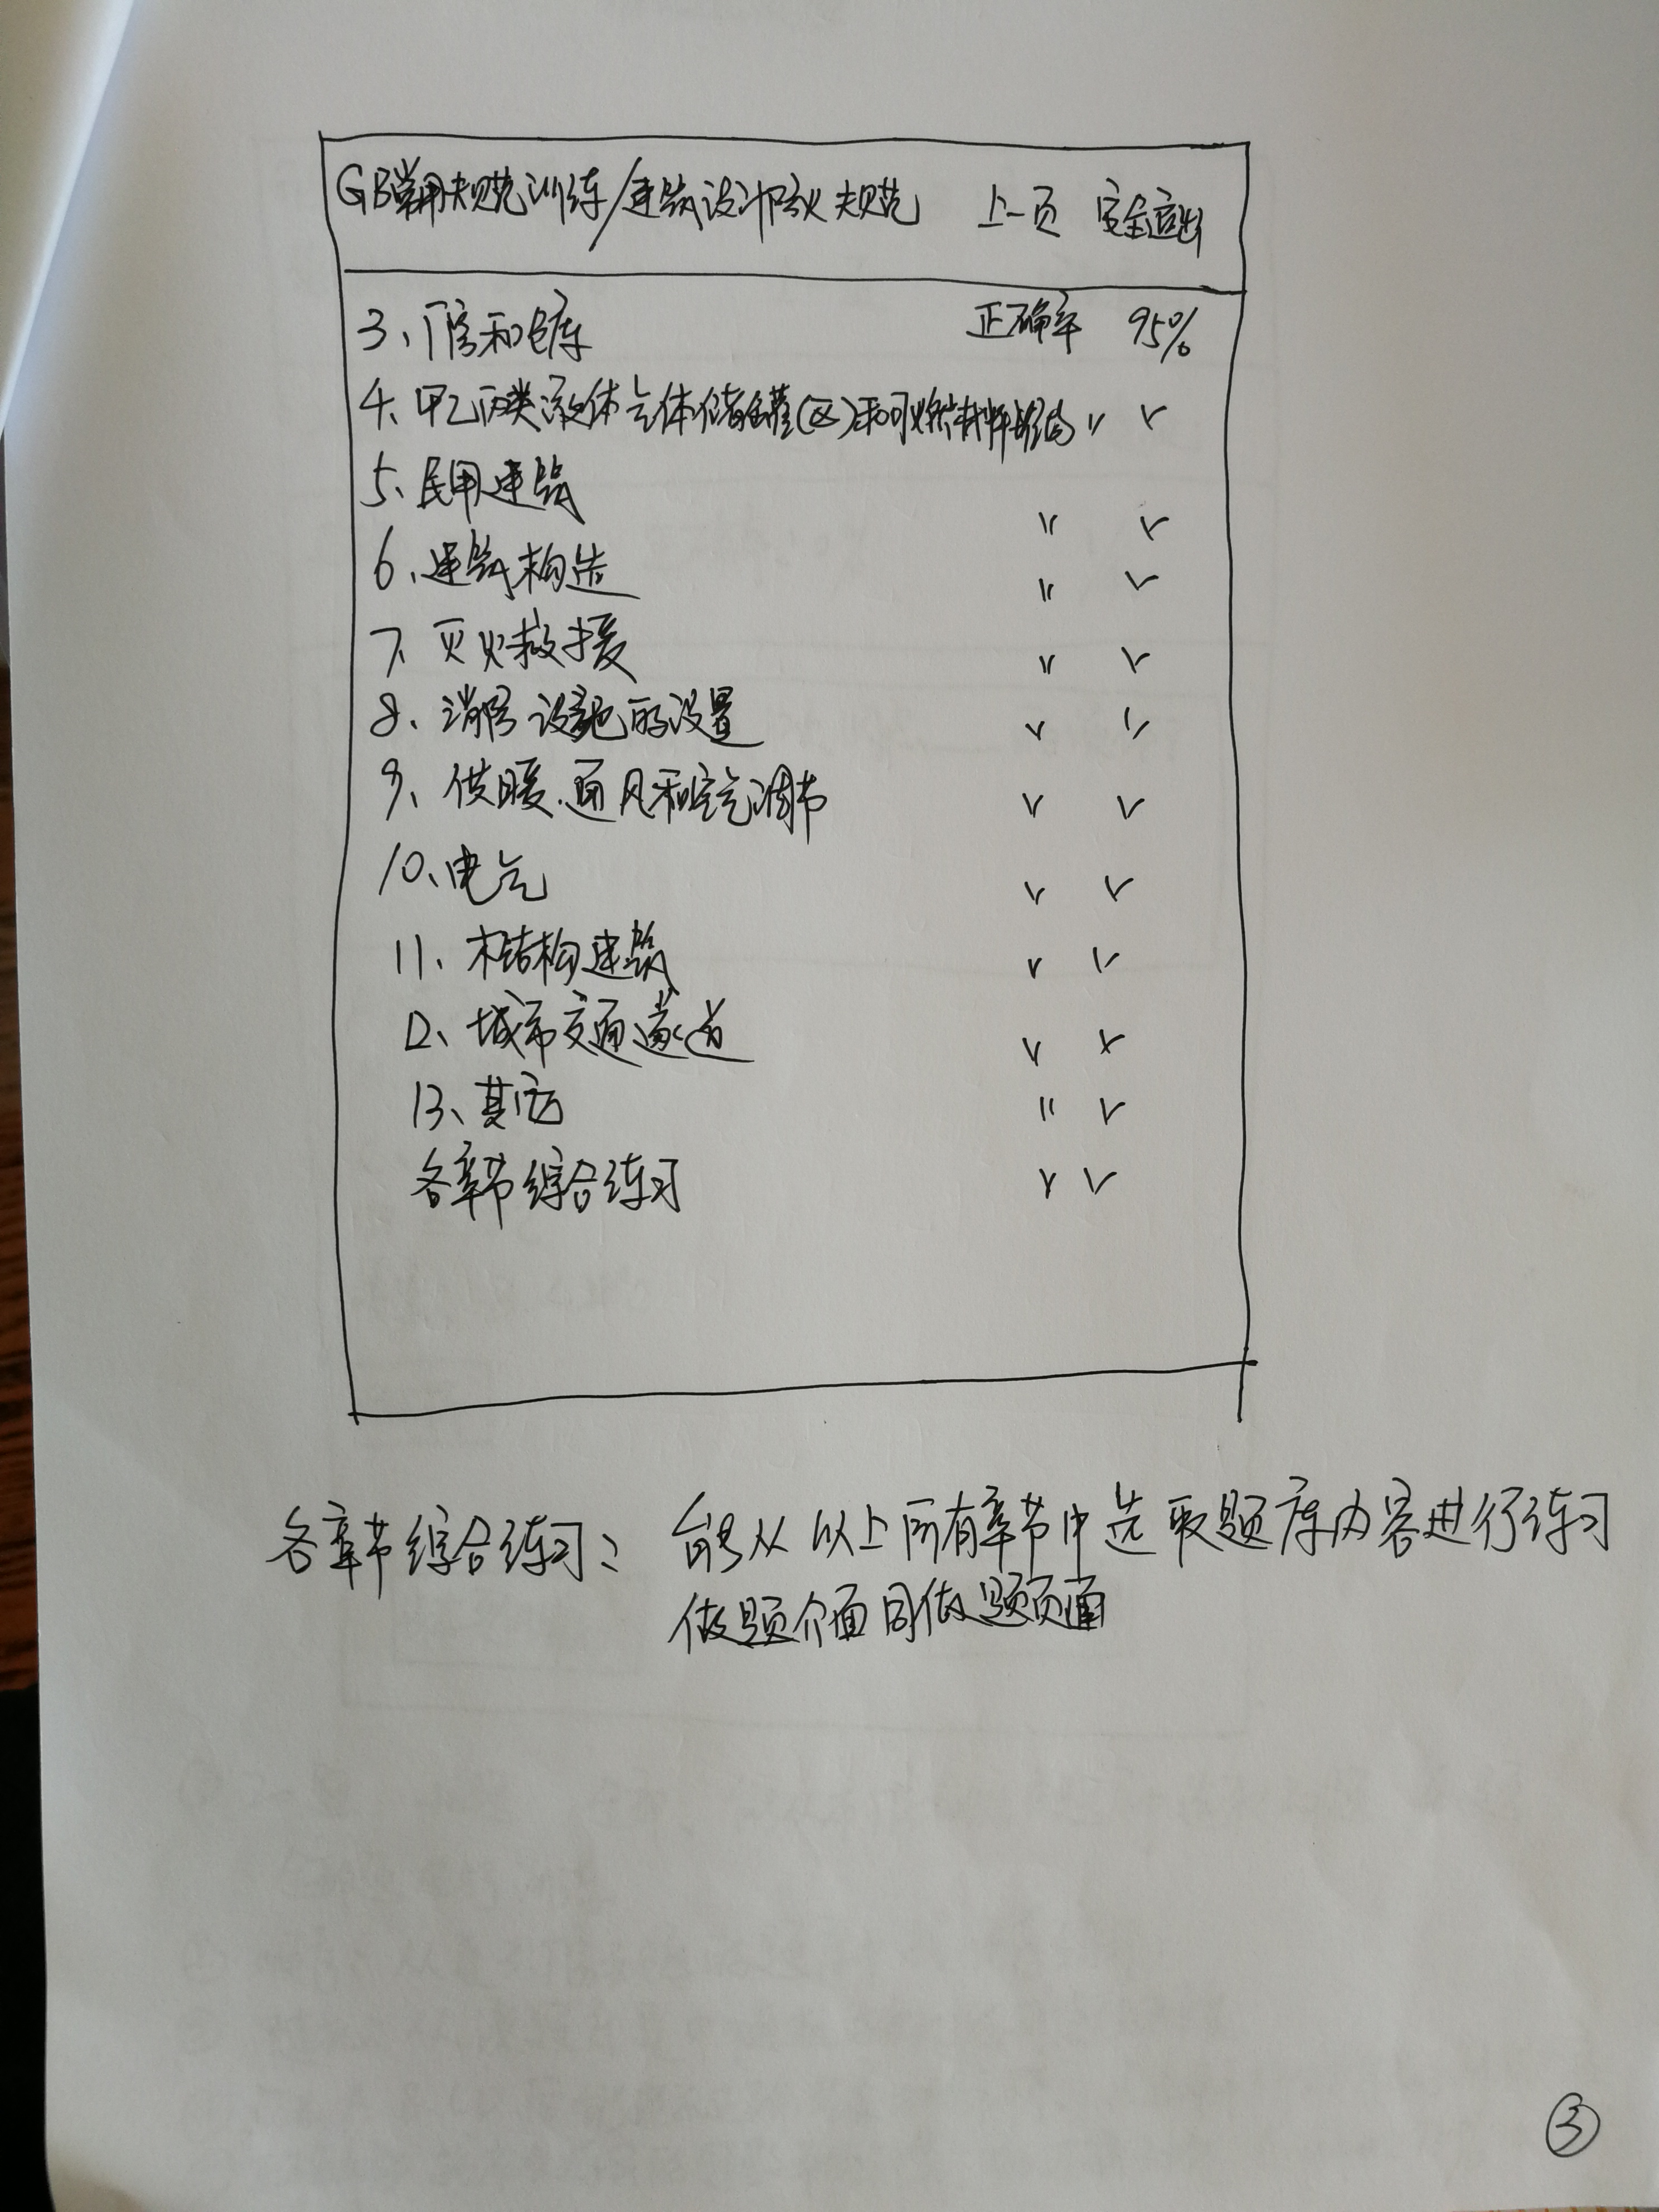 GB常用规范训练/建筑设计防火规范 上一页 安全退出
3、厂房和仓库 正确率 95%
4、甲乙丙类液体气体储罐(区)和可燃材料堆场 〃 ✓
5、民用建筑 〃 ✓
6、建筑构造 〃 ✓
7、灭火救援 〃 ✓
8、消防设施的设置 ✓ 〃
9、供暖.通风和空气调节 ✓ ✓
10、电气 ✓ ✓
11、木结构建筑 ✓ ✓
12、城市交通隧道 ✓ ✓
13、其它 〃 ✓
各章节综合练习 ✓ ✓
各章节综合练习: 能从以上所有章节中选取题库内容进行练习
做题介面同做题页面
③